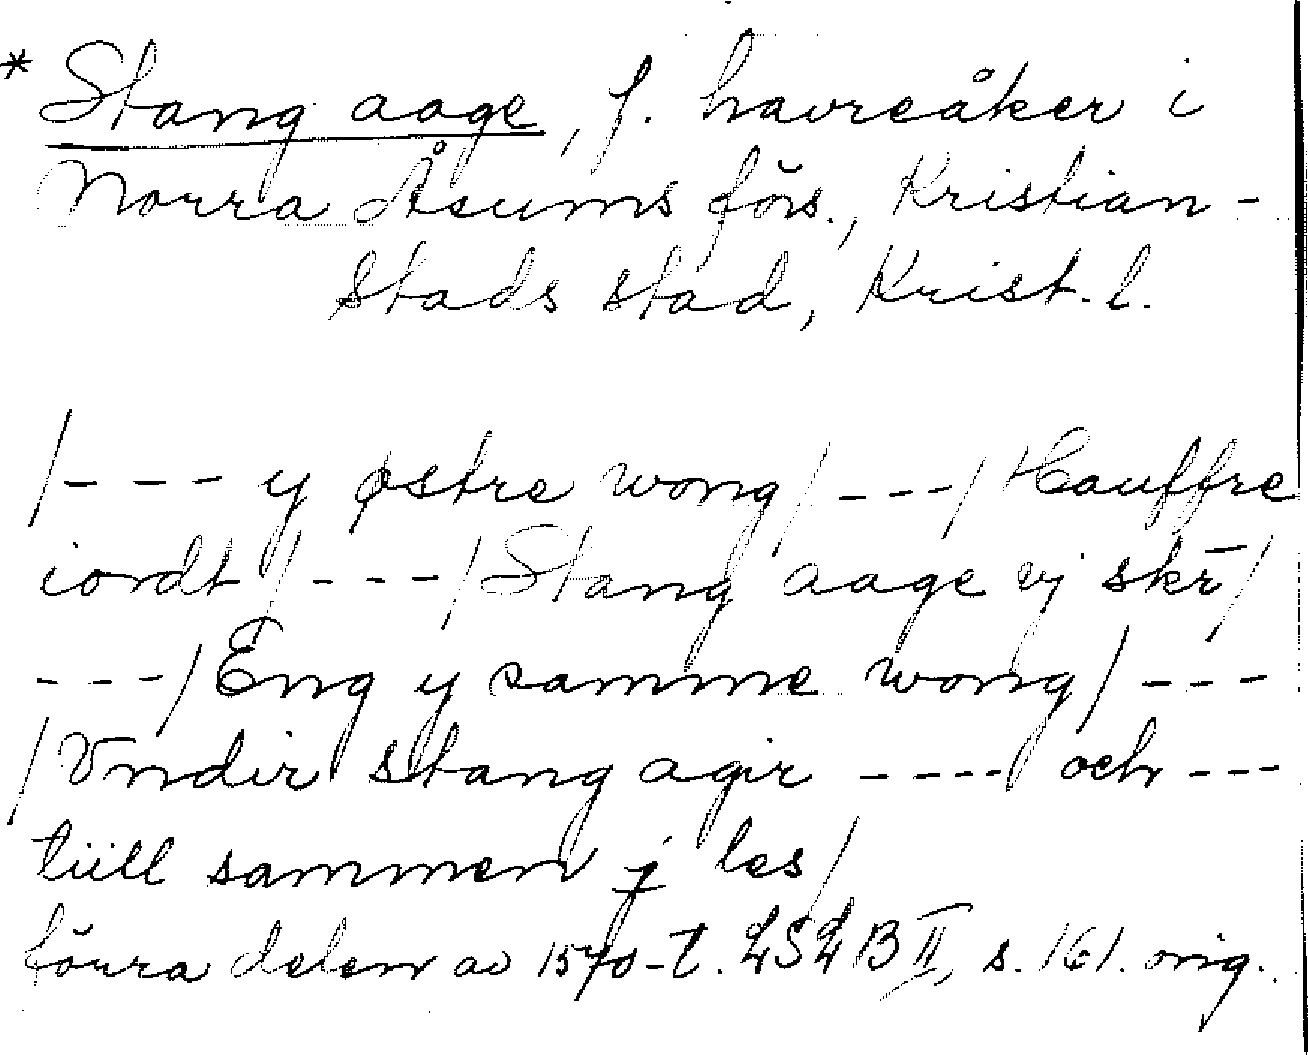 * Stang aage, f. havreåker i
Norra Åsums förs., Kristian-
stads stad, Krist. l.
/--- y østre wong / --- / Hauffre
iordt / --- / Stang aage vj skr̄ /
--- / Eng y samme wong / ---
/ Vndir stang agir ---- och ---
tüll sammen j les /
förra delen av 1570-t. LSLB II, s. 161. orig.